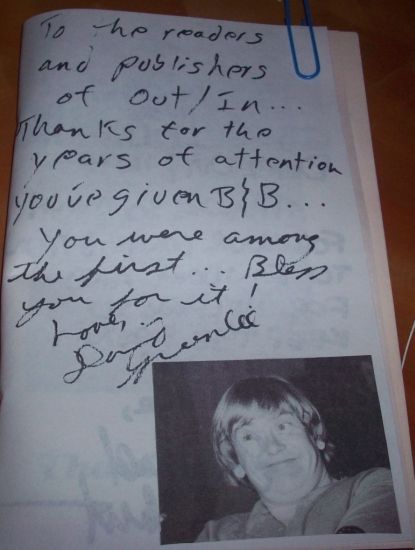 To the readers
and publishers
of Out/In...
Thanks for the
years of attention
you've given B&B...
You were among
the first... Bless
you for it!
Love,
David
Greenlee